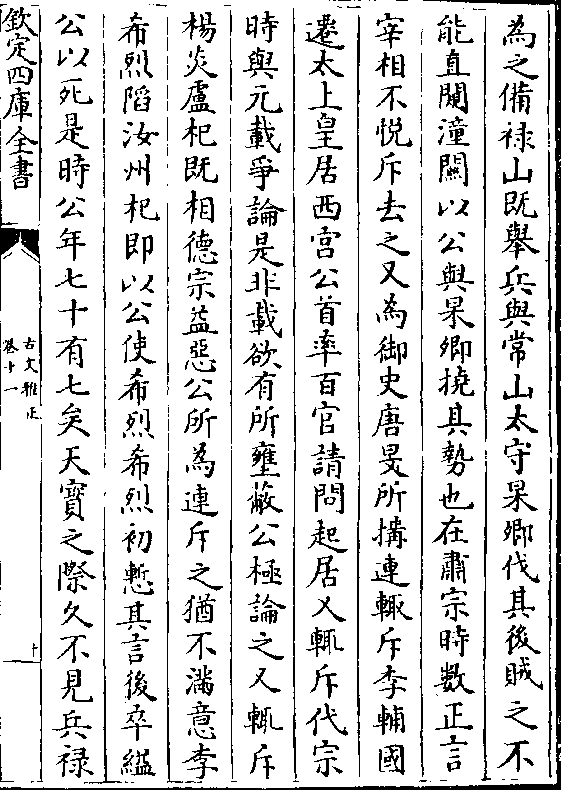 為之備祿山既舉兵與常山太守杲卿伐其後賊之不
能直闚潼關以公與杲卿撓其勢也在肅宗時數正言
宰相不悦斥去之又為御史唐旻所搆連輒斥李輔國
遷太上皇居西宫公首率百官請問起居又輒斥代宗
時與元載爭論是非載欲有所壅蔽公極論之又輒斥
楊炎盧杞既相德宗益惡公所為連斥之猶不滿意李
希烈陷汝州杞即以公使希烈希烈初慙其言後卒縊
公以死是時公年七十有七矣天寶之際久不見兵祿
欽定四庫全書
古文雅正
卷十一
十